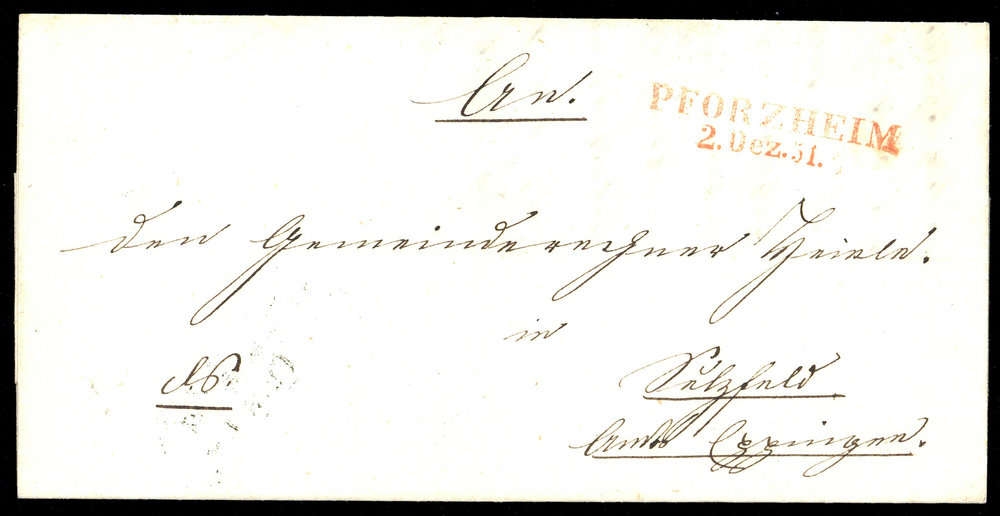 An.
PFORZHEIM
2. Dez. 51.
den Gemeinderechner
in
d. S.
Sulzfeld
Amts Eppingen.